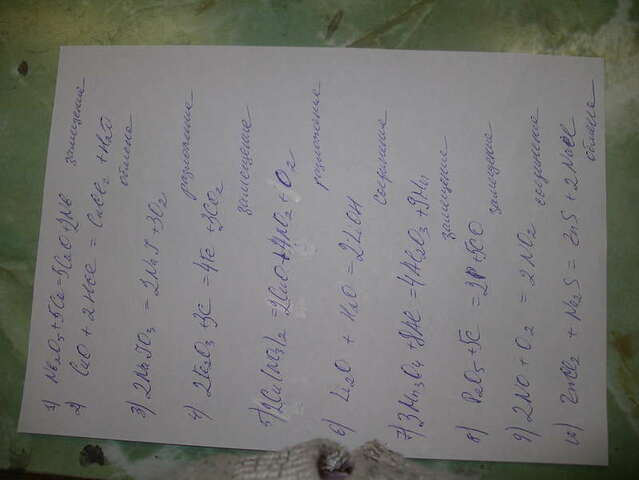 1) Nb2O5 + 5Ca = 5CaO + 2Nb замещение
2) CuO + 2HCl = CuCl2 + H2O обмена
3) 2NaJO3 = 2NaJ + 3O2 разложение
4) 2Fe2O3 + 3C = 4Fe + 3CO2 замещение
5) 2Cu(NO3)2 = 2CuO + 4NO2 + O2 разложение
6) Li2O + H2O = 2LiOH соединение
7) 3Mn3O4 + 8Al = 4Al2O3 + 9Mn замещение
8) P2O5 + 5C = 2P + 5CO замещение
9) 2NO + O2 = 2NO2 соединение
10) ZnCl2 + Na2S = ZnS + 2NaCl обмена